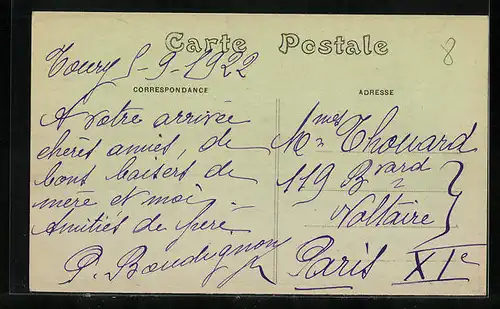 Carte Postale
8
Toury 5-9-1922
CORRESPONDANCE
A votre arrivée
chères amies, de
bons baisers de
mère et moi.
Amitiés de père.
P. Baudignon
ADRESSE
Mmes Thouard
119 Bvard
Voltaire
Paris XIe